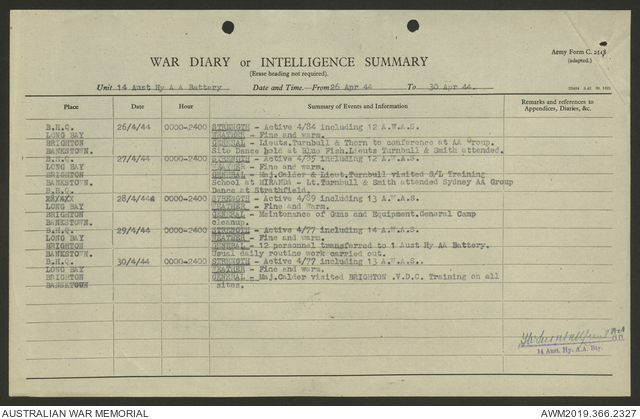 Army Form C. 2118
(adapted.)
WAR DIARY or INTELLIGENCE SUMMARY
(Erase heading not required).
Unit 14 Aust Hy A A Battery Date and Time.—From 26 Apr 44 To 30 Apr 44.
Place Date Hour Summary of Events and Information Remarks and references to Appendices, Diaries, &c.
B.H.Q. 26/4/44 0000-2400 STRENGTH - Active 4/84 including 12 A.W.A.S.
LONG BAY WEATHER - Fine and warm.
BRIGHTON GENERAL - Lieuts.Turnbull & Thorn to conference at AA Group.
BANKSTOWN. Site Dance held at Blue Fish.Lieuts Turnbull & Smith attended.
B.H.Q. 27/4/44 0000-2400 STRENGTH - Active 4/85 including 12 A.W.A.S.
LONG BAY WEATHER - Fine and warm.
BRIGHTON GENERAL - Maj.Calder & Lieut.Turnbull visited S/L Training
BANKSTOWN. School at MIRANDA - Lt.Turnbull & Smith attended Sydney AA Group
B.H.Q. Dance at Strathfield.
28/4/44 0000-2400 STRENGTH - Active 4/89 including 13 A.W.A.S.
LONG BAY WEATHER - Fine and Warm.
BRIGHTON GENERAL - Maintenance of Guns and Equipment.General Camp
BANKSTOWN. cleanup.
B.H.Q. 29/4/44 0000-2400 STRENGTH - Active 4/77 including 14 A.W.A.S.
LONG BAY WEATHER - Fine and warm.
BRIGHTON GENERAL - 12 personnel transferred to 1 Aust Hy AA Battery.
BANKSTOWN. Usual daily routine work carried out.
B.H.Q. 30/4/44 0000-2400 STRENGTH - Active 4/77 including 13 A.W.A.S..
LONG BAY WEATHER - Fine and warm.
BRIGHTON GENERAL - Maj.Calder visited BRIGHTON .V.D.C. Training on all
sites.
14 Aust. Hy. A.A. Bty.
AUSTRALIAN WAR MEMORIAL AWM2019.366.2327